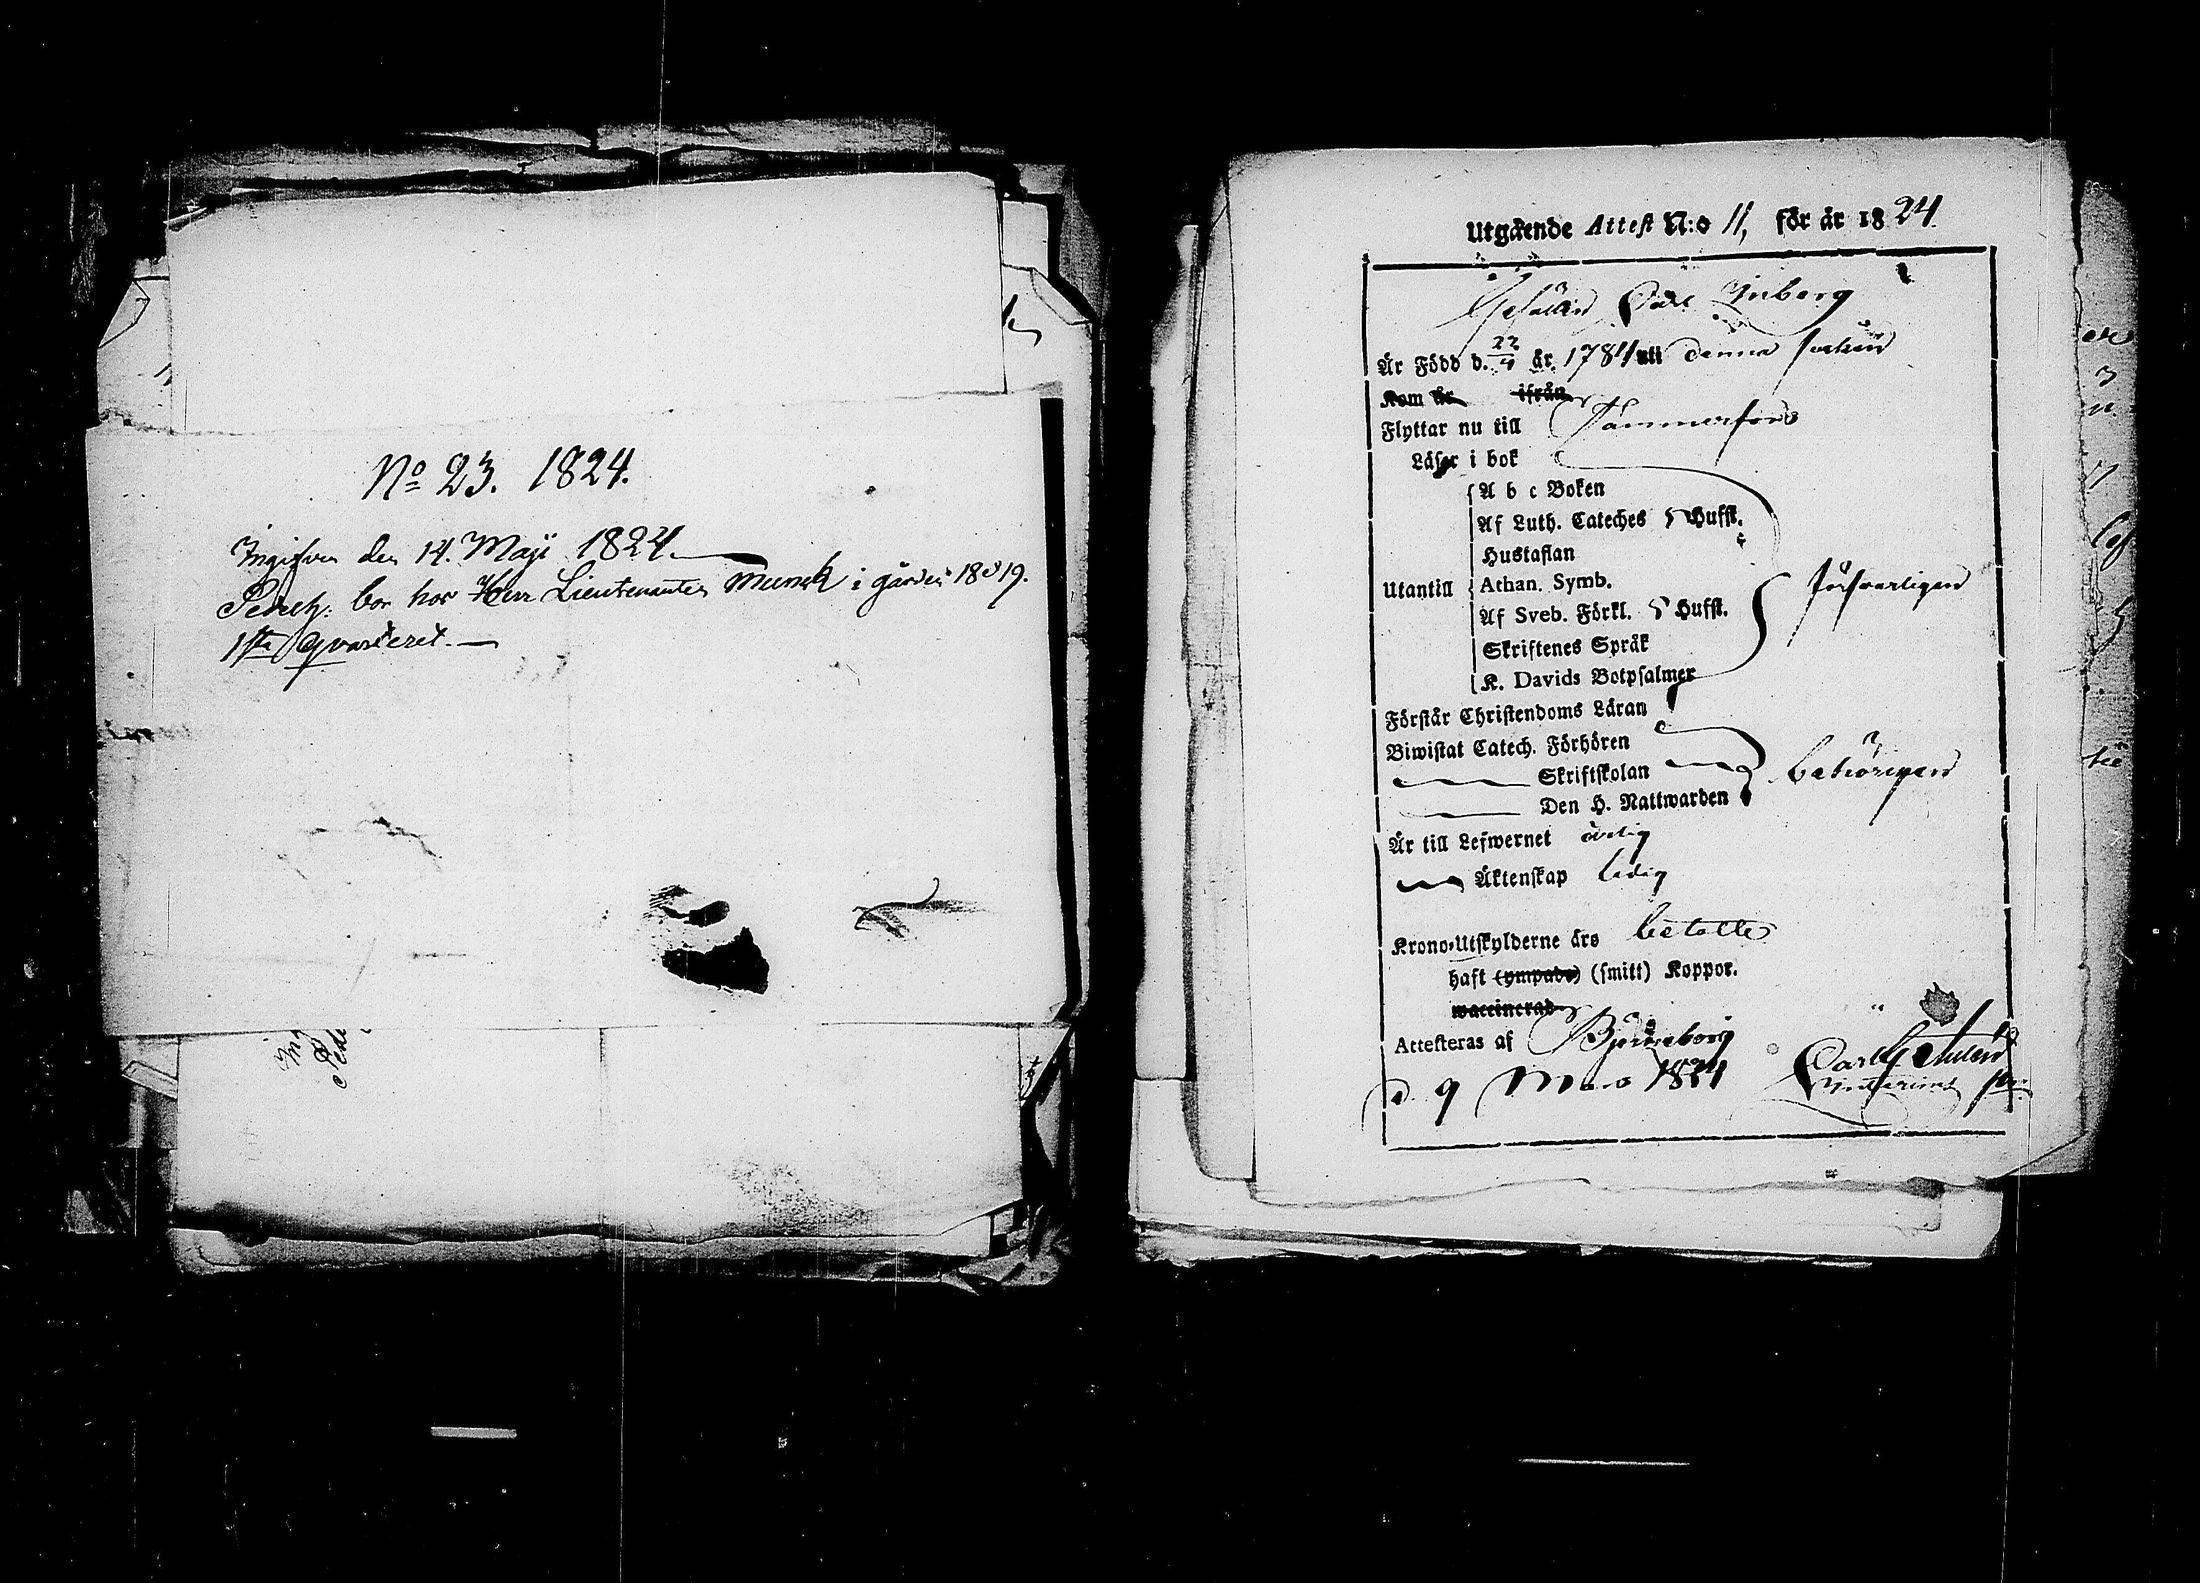 No 23. 1824.
Ingifven den 14. Maji 1824.
bor hos Herr Lieutenanten Munck i gården 18 & 19.
1sta qvarteret.
Utgående Attest N:o 11, för år 1824.
Gesällen Carl Enberg
Är Född d. 22/4 år 1784 uti denna socken
Kom år ifrån
Flyttar nu till Tammerfors
Läser i bok
A b c Boken
Af Luth. Cateches 5 Hufst.
Hustaflan
Utantill Athan. Symb. försvarligen
Af Sveb. Förkl. 5 Hufst.
Skriftenes Språk
K. Davids Botpsalmer
Förstår Christendoms Läran
Biwistat Catech. Förhören
Skriftskolan behörigen
Den H. Nattwarden
Är till Lefwernet ärlig
Äktenskap ledig
Krono-Utskylderne äro betalte
haft (ympade) (smitt) Koppor.
waccinerad
Attesteras af Björneborg
d. 9 1824 Carl